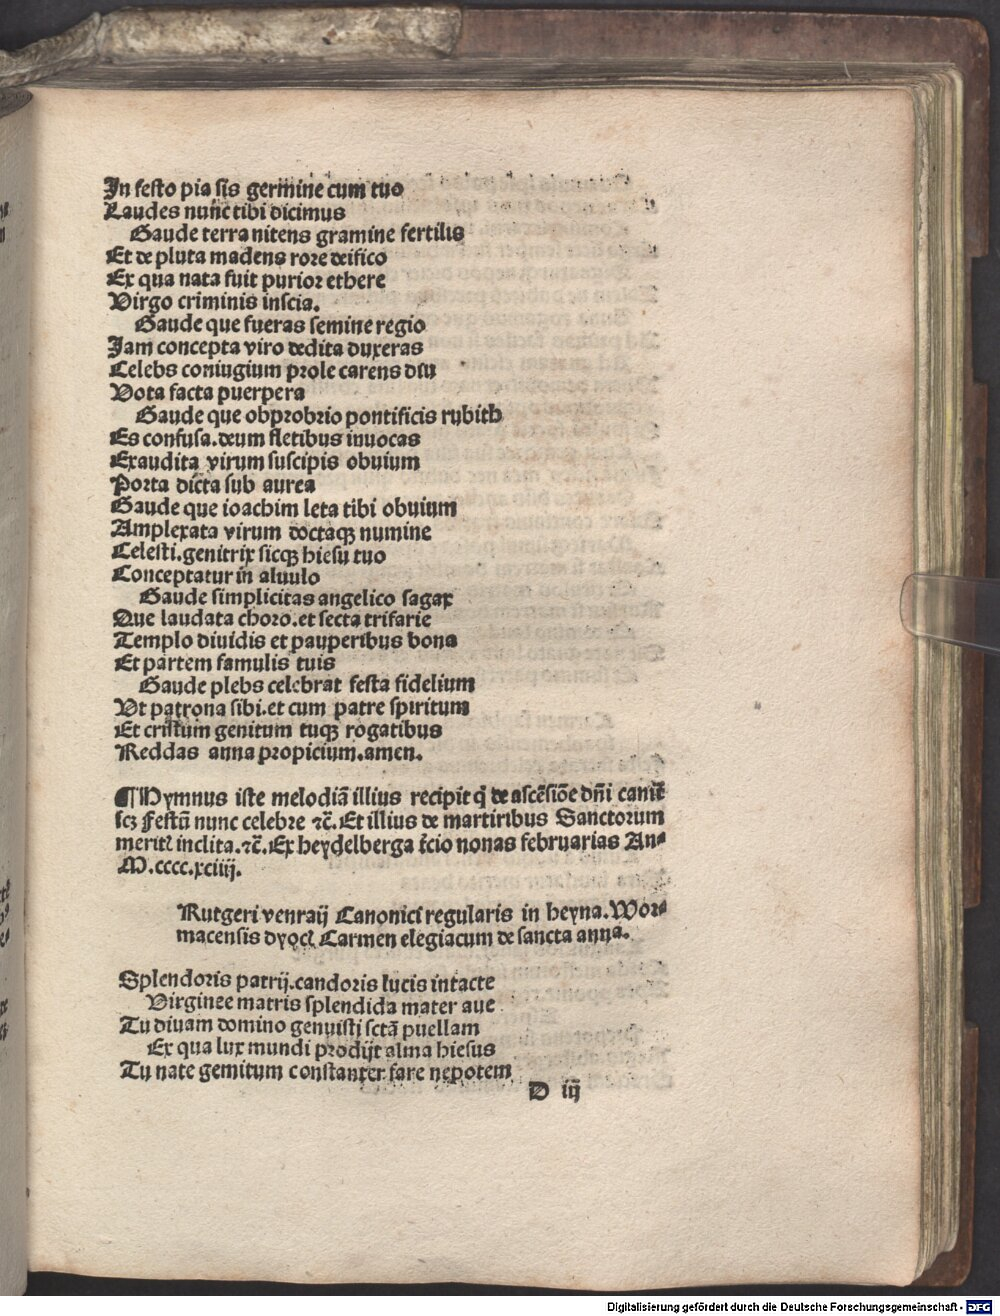 In festo pia sis germine cum tuo
Laudes nunc tibi dicimus
Gaude terra nitens gramine fertilis
Et de pluta madens rore deifico
Ex qua nata fuit purior ethere
Virgo criminis inscia.
Gaude que fueras semine regio
Jam concepta viro dedita duxeras
Celebs coniugium prole carens diu
Vota facta puerpera
Gaude que obprobrio pontificis rubith
Es confusa.deum fletibus inuocas
Exaudita virum suscipis obuium
Porta dicta sub aurea
Gaude que ioachim leta tibi obuium
Amplexata virum doctaqꝫ numine
Celesti.genitrix sicqꝫ hiesu tuo
Conceptatur in aluulo
Gaude simplicitas angelico sagax
Que laudata choro.et secta trifarie
Templo diuidis et pauperibus bona
Et partem famulis tuis
Gaude plebs celebrat festa fidelium
Vt patrona sibi.et cum patre spiritum
Et cristum genitum tuqꝫ rogatibus
Reddas anna propicium.amen.
¶Hymnus iste melodiā illius recipit q̄ de ascēsiōe dn̄i canit̄
scꝫ Festū nunc celebre ⁊c̄.Et illius de martiribus Sanctorum
merit̄ inclita.⁊c̄.Ex heydelberga t̄cio nonas februarias An-
M.cccc.xciiij.
Rutgeri venraij Canonici regularis in heyna.Wor-
macensis dyoc̄ Carmen elegiacum de sancta anna.
Splendoris patrij.candoris lucis intacte
Virginee matris splendida mater aue
Tu diuam domino genuisti sctā puellam
Ex qua lux mundi prodijt alma hiesus
Tu nate gemitum constanter fare nepotem
D iij
Digitalisierung gefördert durch die Deutsche Forschungsgemeinschaft - DFG